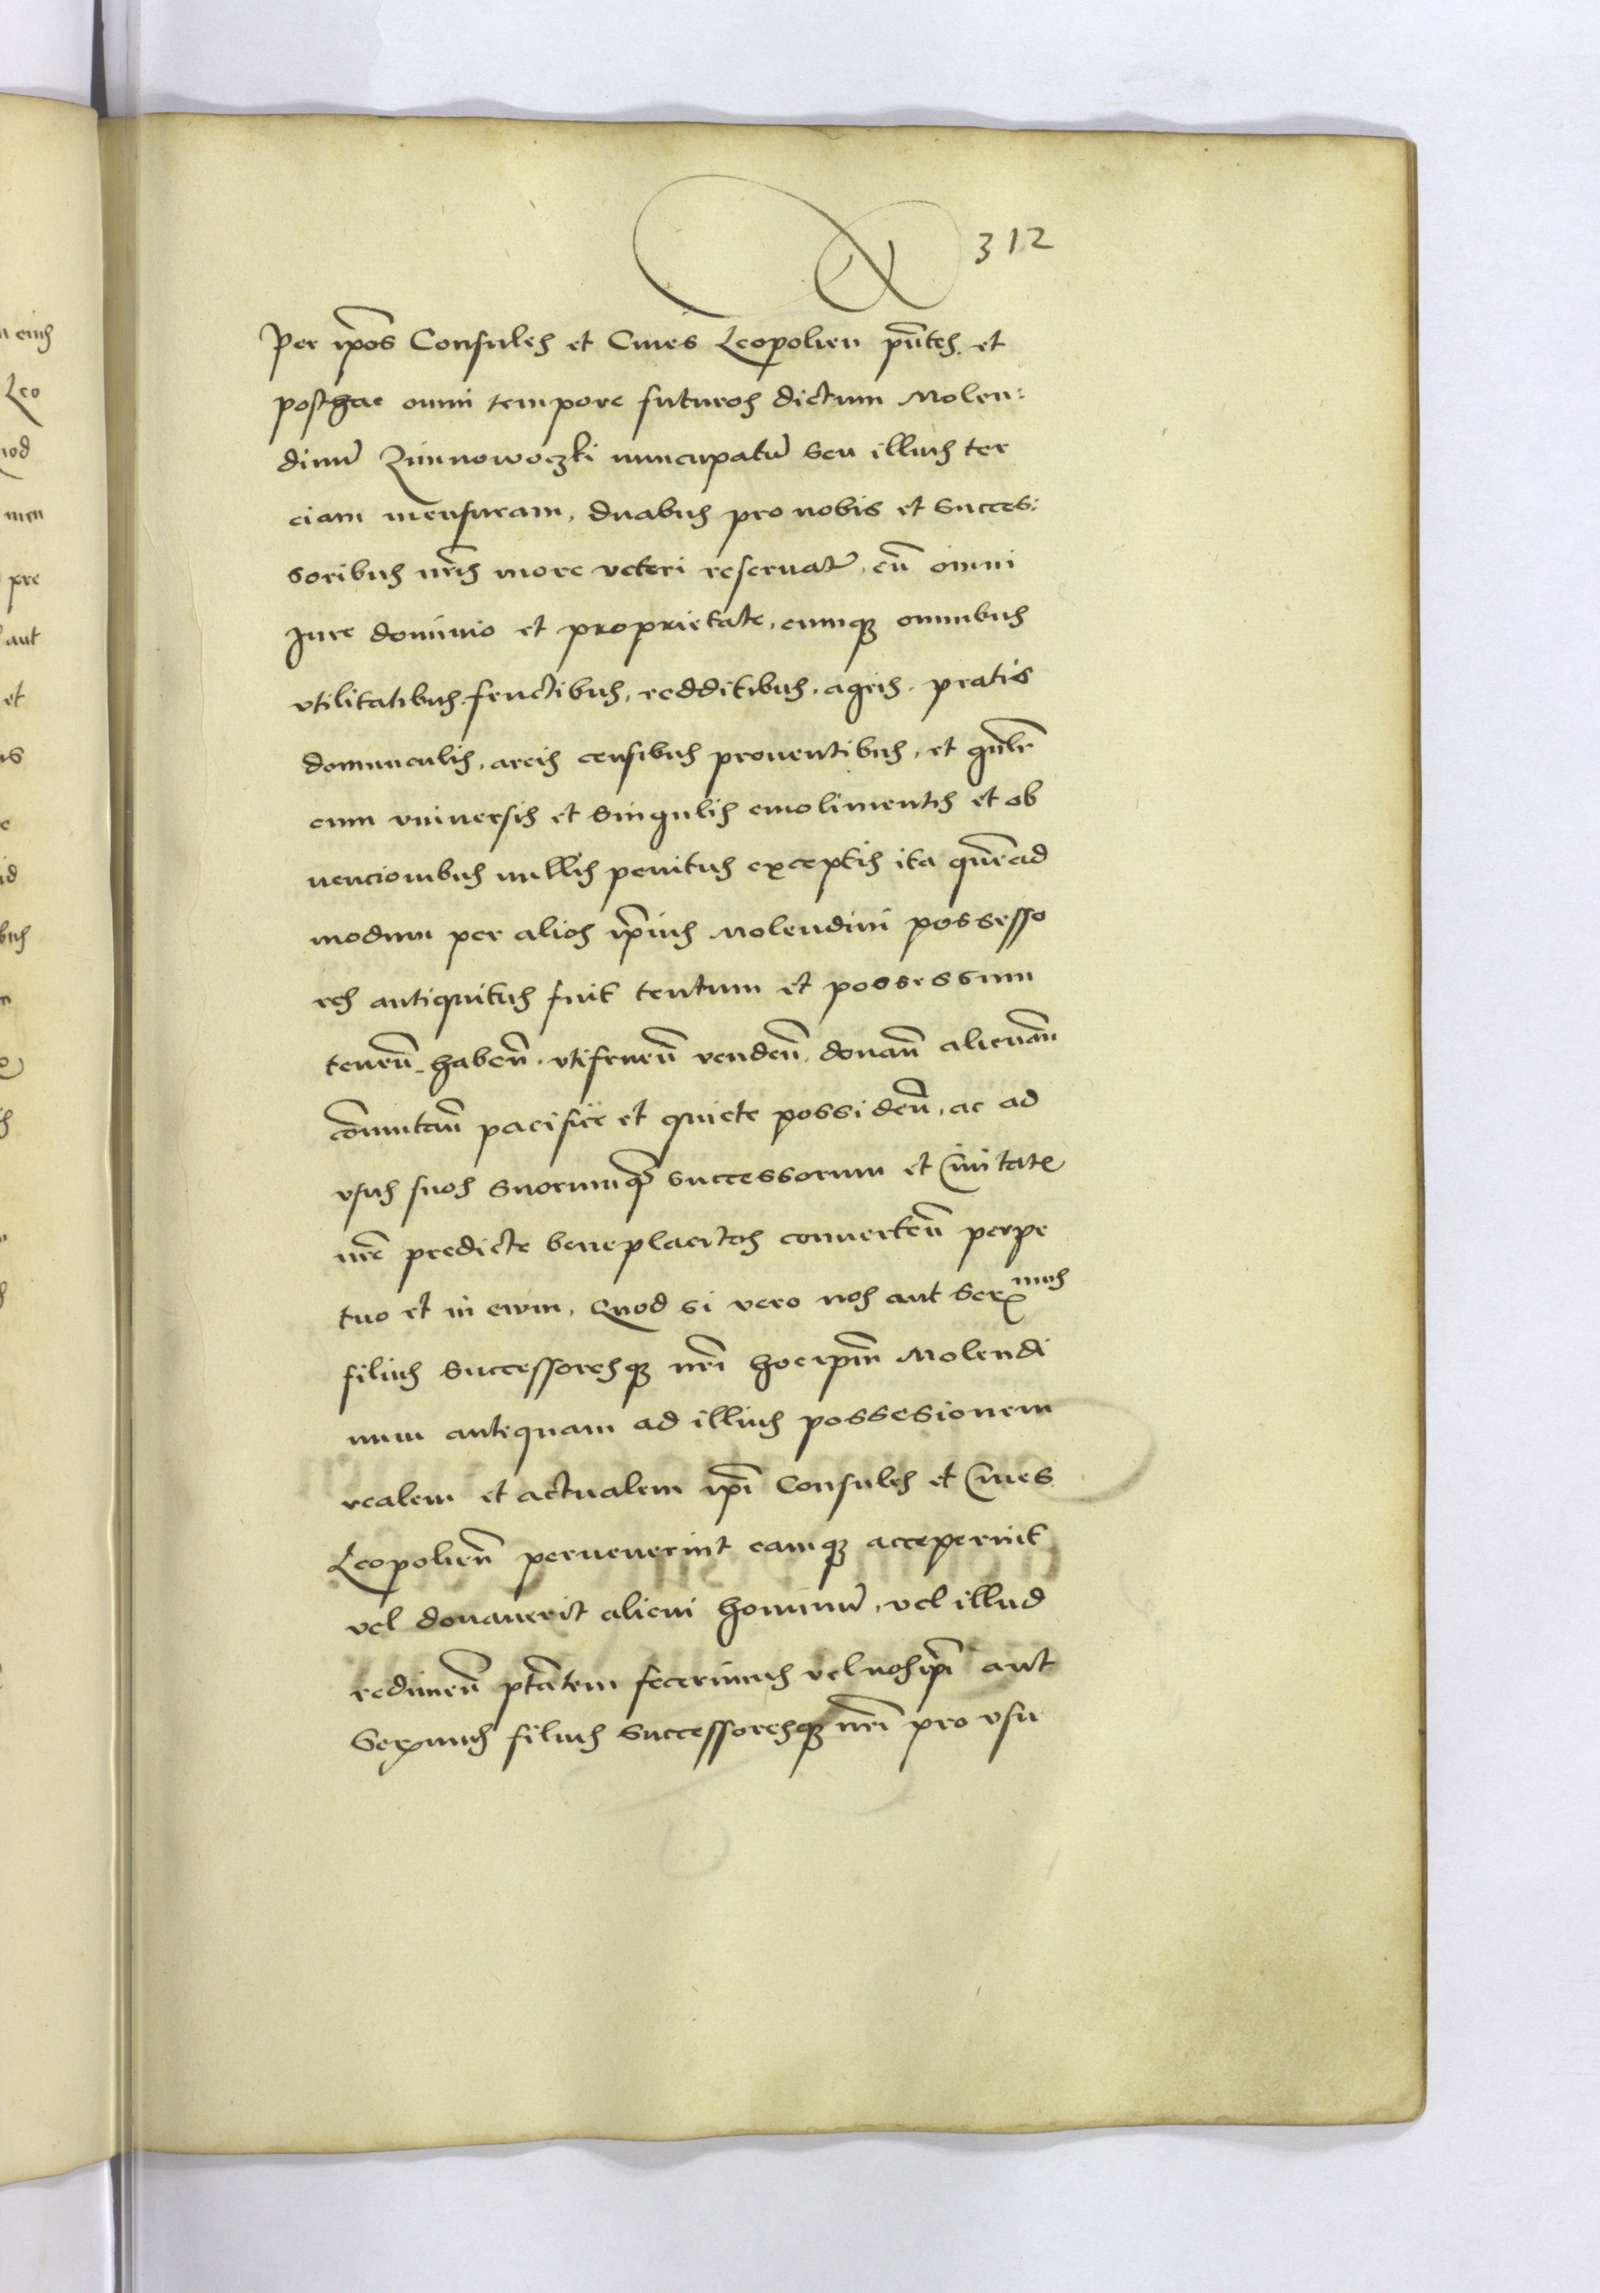 312
Per ip̄os Consules et Ciues Leopolien̄ pn̄tes et
posthac omni tempore futuros dictum Molen:
dinū Zimnowoczki nuncupatū seu illius ter
ciam mensuram, duabus pro nobis et succes:
soribus nr̄is more veteri reseruatis, cū omni
Jure dominio et proprietate, cumq3 omnibus
vtilitatibus, fructibus, redditibus, agris, pratis
domunculis, areis censibus prouentibus, et gn̄lr̄
cum vniuersis et singulis emolimentis et ob
uencionibus nullis penitus exceptis ita quēad
modum per alios ip̄ius Molendini possesso
res antiquitus fuit tentum et possessum
tenen̄. haben̄. vtifruen̄ venden̄. donan̄ alienan̄
cōmutan̄ pacifice et quiete possiden̄, ac ad
vsus suos suorumq3 successorum et Ciuitatis
nr̄e predicte beneplacitos conuerten̄ perpe
tuo et in ewm, Quod si vero nos aut Ser mus
filius successoresq3 nr̄i hoc ip̄m Molendi
num antequam ad illius possesionem
realem et actualem ip̄i Consules et Ciues
Leopolien̄ peruenerint eamq3 acceperint
vel donauerit alicui hominū, vel illud
redimen̄ ptātem fecerimus vel nos ip̄i aut
Ser mus filius successoresq3 nr̄i pro vsu
n eius
Leo
uod
men
pre
aut
et
us
id
bus